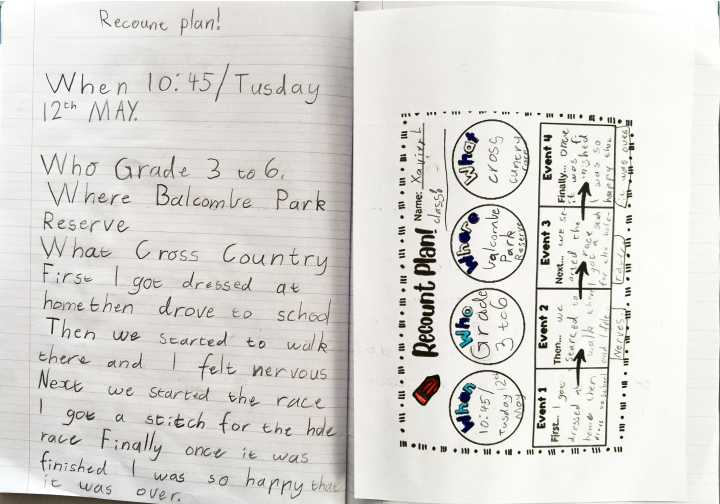 Recount plan!
When 10:45/Tusday
12th MAY.
Who Grade 3 to 6.
Where Balcombe Park
Reserve
What Cross Country
First I got dressed at
home then drove to school
Then we started to walk
there and I felt nervous
Next we started the race
I got a stitch for the hole
race Finally once it was
finished I was so happy that
it was over.
Recount Plan!
Name: Xavier L
When
10:45/
Tuesday 12th
May
Who
Grade
3 to 6
Where
Balcombe
Park
Reserve
What
cross
cuntry
race
Event 1
First... I got
dressed at
home then
drive to school
Event 2
Then... we
started to
walk there
and I felt
Nerves.
Event 3
Next... we st-
arted the
race
I got a stich
for the hole
race
Event 4
Finally... once
it was fi-
nished
I was so
happy that
it was over